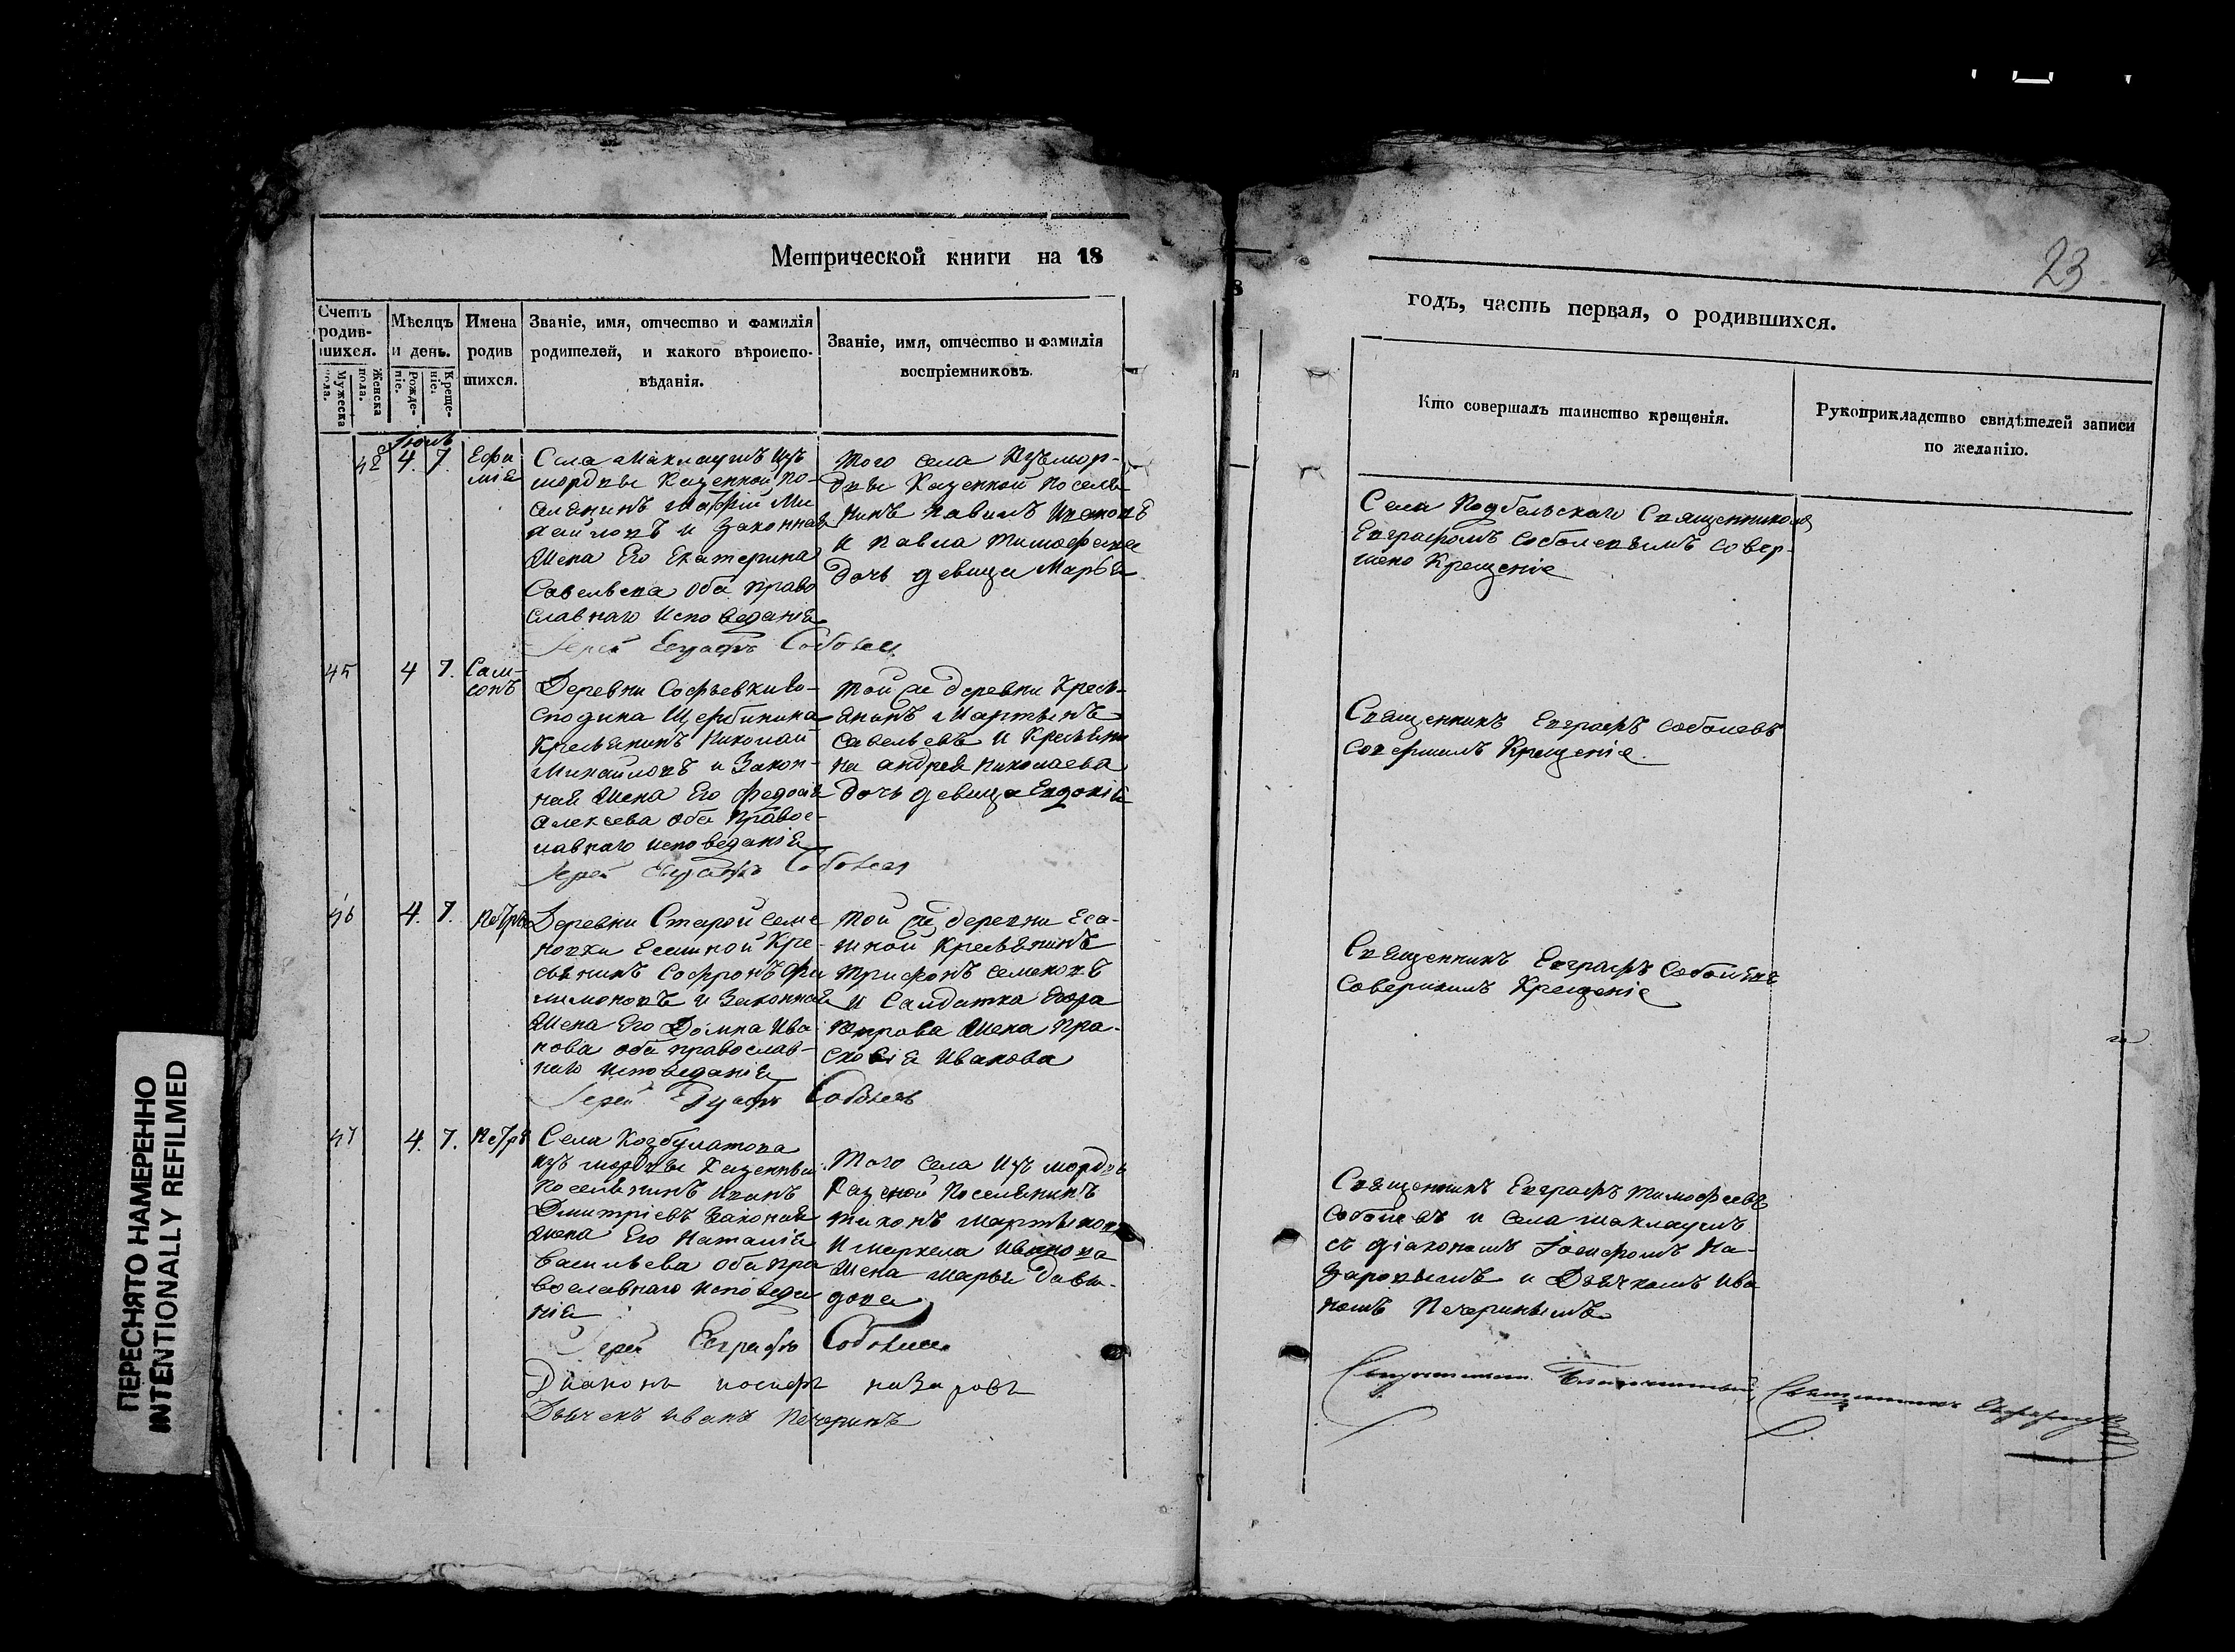 23
Метрической книги на 18
годъ, часть первая, о родившихся.
Счетъ родив-шихся.
Мужеска пола.
Женска пола.
Мѣсяцъ и день.
Рожде-ніе.
Креще-ніе.
Имена родив шихся.
Званіе, имя, отчество и фамилія
родителей, и какого вѣроиспо-
вѣданія.
Званіе, имя, отчество и фамилія
воспріемниковъ.
Кто совершалъ таинство крещенія.
Рукоприкладство свидѣтелей записи
по желанію.
4. 7.
Ефи
мія
Села Маклаушъ изъ
мордвы Казенной по-
селянинъ Ми
хайловъ и Законная
Жена Его Екатерина
Савельева оба право
славнаго Исповеданія
Іерей Евграфъ Соболев
Того села Изъ мор-
двы Казенной поселя
нинъ Павилъ Ивановъ
и Павла Тимофеева
дочь девица Марья
Села Подбельскаго Священникомъ
Евграфомъ Соболевымъ совер-
шено Крещеніе
45 4 7.
Сам-
сонъ
Деревни Софьевки Го-
сподина Щербинина
Крестьянинъ Николай
Михайловъ и Закон-
ная Жена Его Федосія
Алексеева оба правос-
лавнаго исповеданія
Іерей Евграфъ Соболев
Той же деревни Кресть-
янинъ Мартынъ
Савельевъ и Крестьяни
на Андрея Николаева
дочь девица Евдокія
Священникъ Евграфъ Соболевъ
совершилъ Крещеніе.
46 4. 7.
Петръ
Деревни Старой Семе
новки Крес-
тьянинъ Софронъ Фи
лимоновъ и Законная
Жена Его Домна Ива
нова оба православ-
наго исповеданія
Іерей Евграфъ Соболевъ
Той же деревни
Крестьянинъ
Трифонъ Семеновъ
и Салдатка Егора
Петрова Жена Пра-
сковія Иванова
Священникъ Евграфъ Соболевъ
Совершилъ Крещеніе
47 4. 7.
Петръ
Села Козбулатова
изъ мордвы Казенный
Поселянинъ Иванъ
Дмитріевъ Законная
жена Его Наталія
Васильева оба пра
вославнаго исповеда
нія
Іерей Евграфъ Соболев
Діаконъ иосифъ назаровъ
Дьячекъ иванъ Печеринъ
Того села Изъ мордвы
Казеной Поселянинъ
Тихонъ Мартынов
И Маркела Иванова
Жена Марья Давы-
дова
Священникъ Евграфъ Тимофеевъ
Соболевъ и села Маклаушъ
съ діакономъ Іосифомъ На-
заровымъ и Дьячкомъ Ива
номъ Печеринымъ